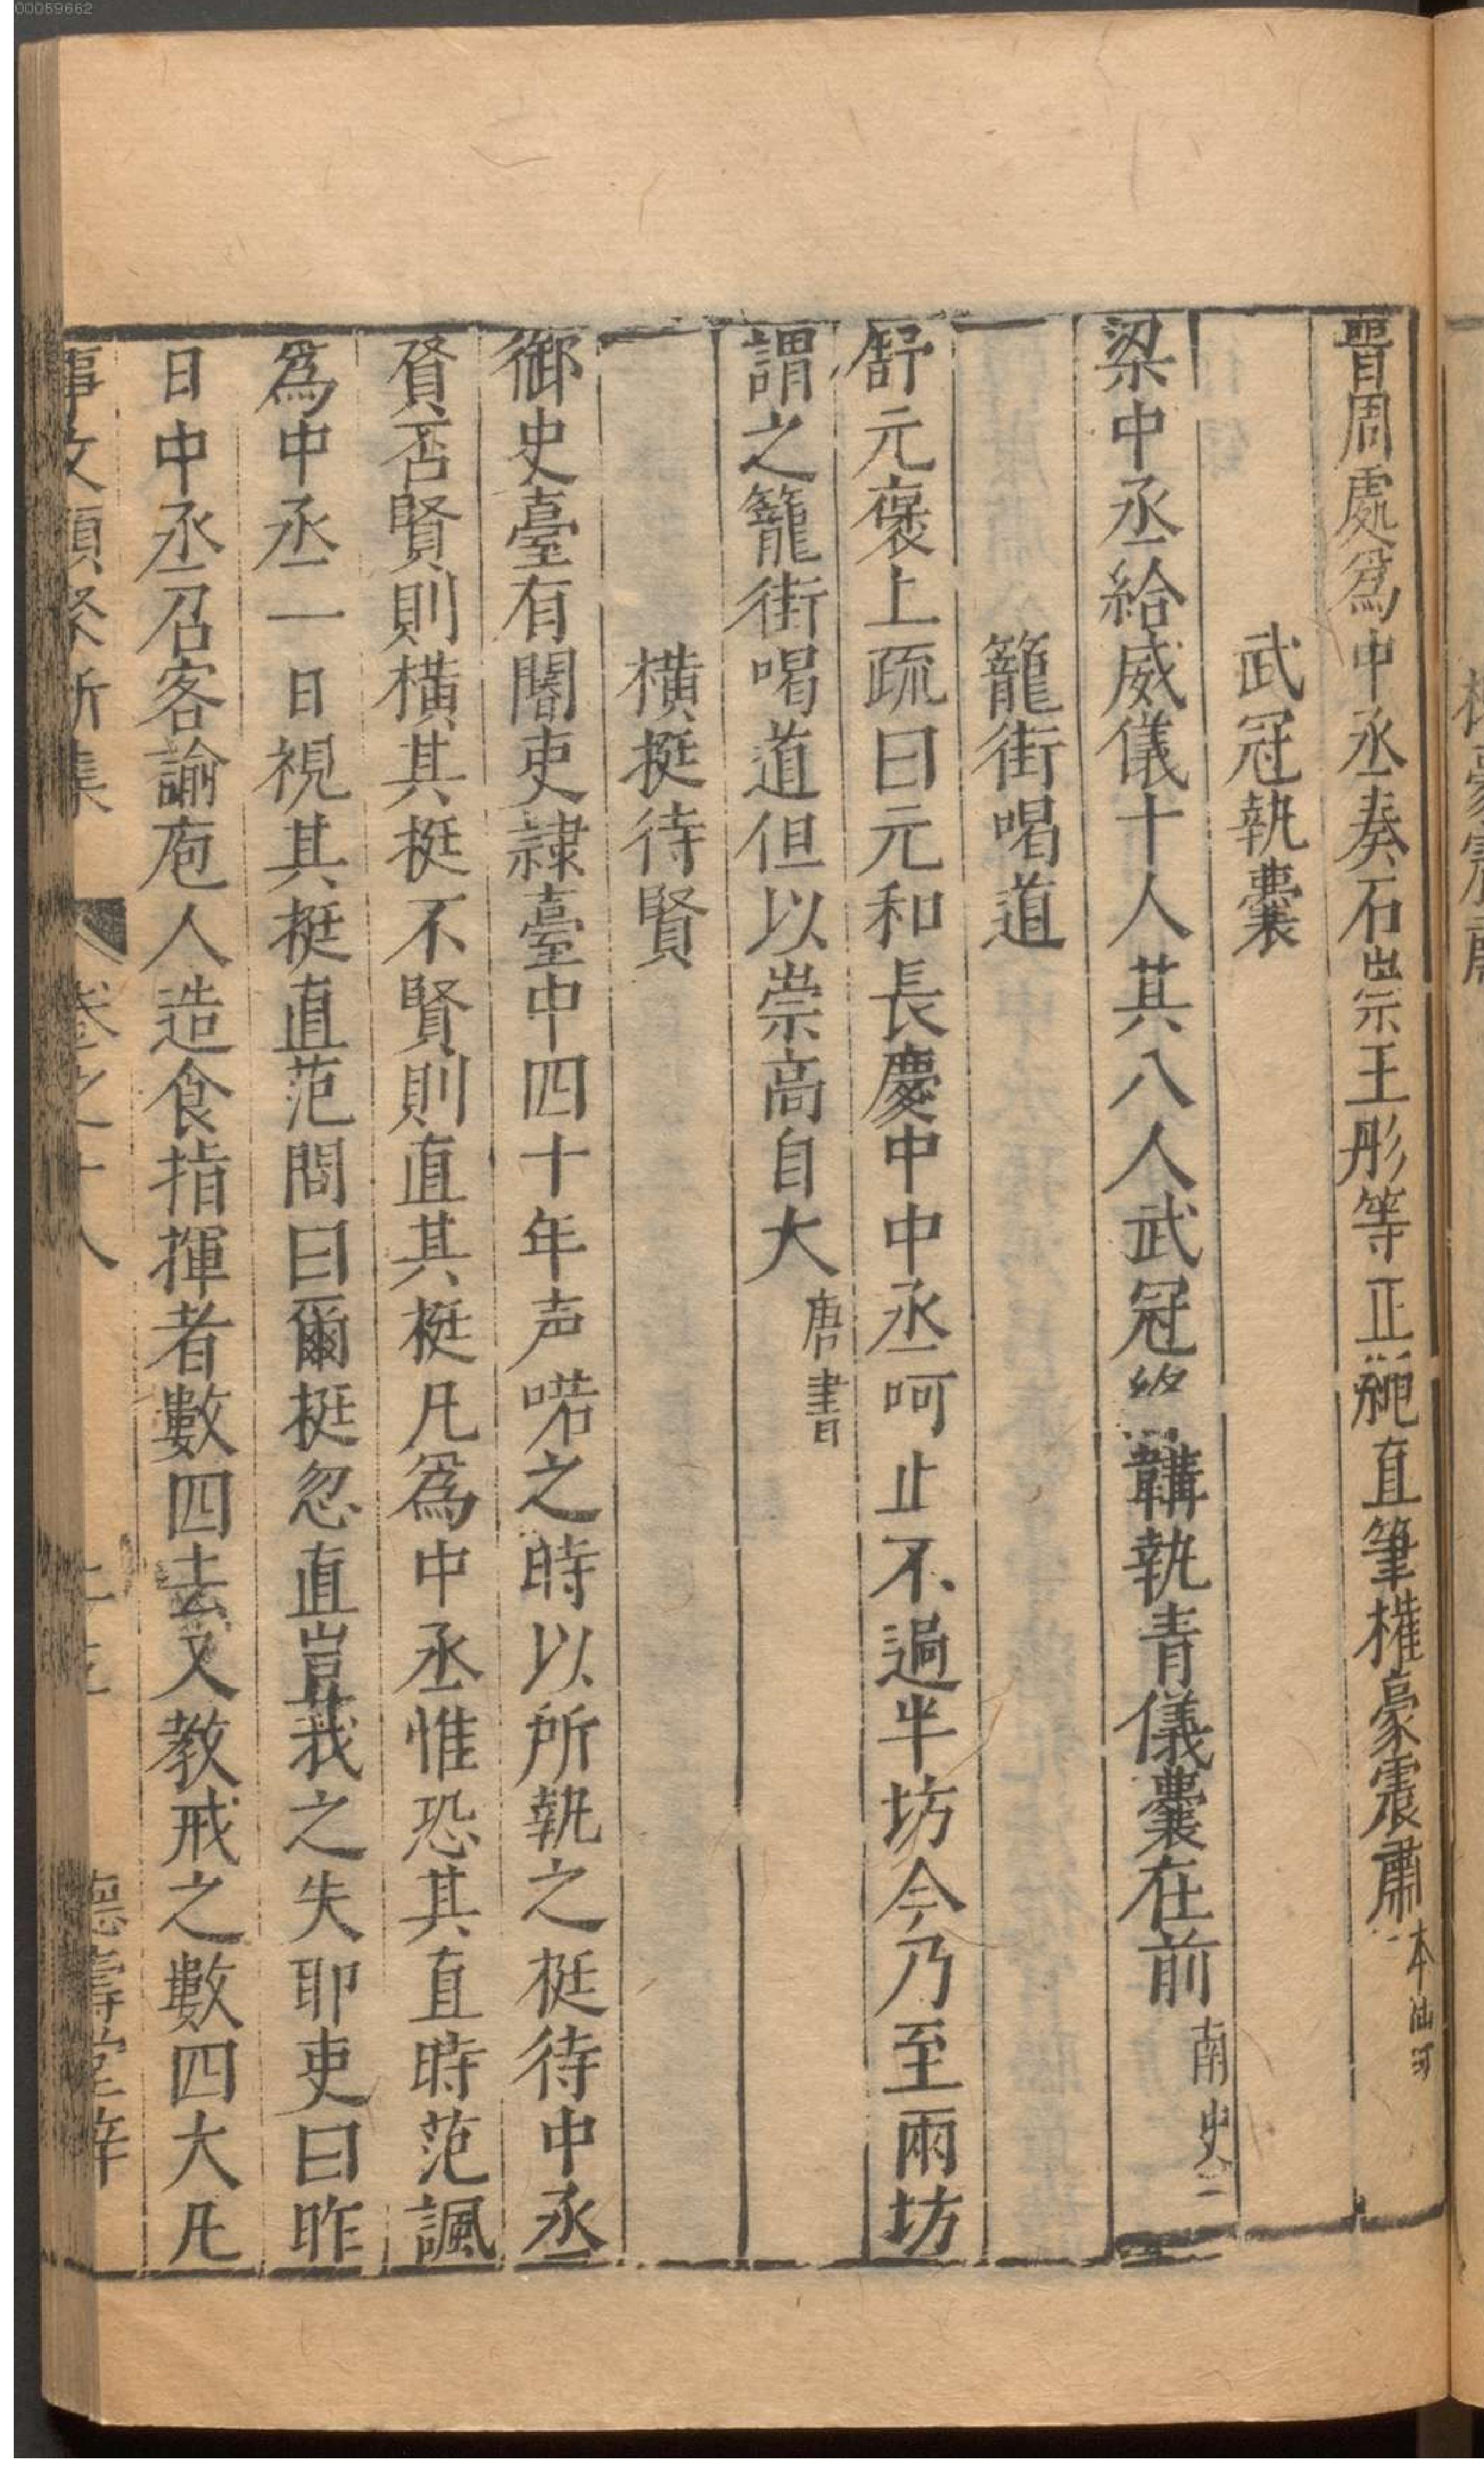 00059662
晋周處爲中丞奏石崇王彤等正繩直筆權豪震肅
武冠執囊
梁中丞給威儀十人其八人武冠絳韝執青儀囊在前南史
籠街喝道
舒元褒上疏曰元和長慶中中丞呵止不過半坊今乃至兩坊
謂之籠街喝道但以崇高自大唐書
橫挺待賢
御史臺有閽吏隷臺中四十年声喏之時以所執之梃待中丞
賢否賢則橫其挺不賢則直其梃凡爲中丞惟恐其直時范諷
爲中丞一日視其挺直范問曰爾梃忽直豈我之失耶吏曰昨
日中丞召客諭庖人造食指揮者數四去又教戒之數四大凡
事文類聚新集 卷之十八 德壽堂梓